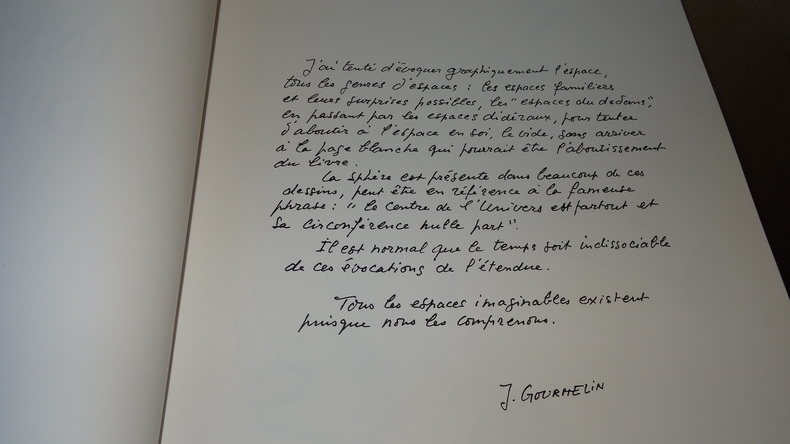 J'ai tenté d'évoquer graphiquement l'espace,
tous les genres d'espaces : les espaces familiers
et leurs surprises possibles, les "espaces du dedans",
en passant par les espaces sidéraux, pour tenter
d'aboutir à l'espace en soi, le vide, sans arriver
à la page blanche qui pourrait être l'aboutissement
du livre.
La sphère est présente dans beaucoup de ces
dessins, peut être en référence à la fameuse
phrase : "le centre de l'Univers est partout et
sa circonférence nulle part".
Il est normal que le temps soit indissociable
de ces évocations de l'étendue.
Tous les espaces imaginables existent
puisque nous les comprenons.
J. GOURMELIN